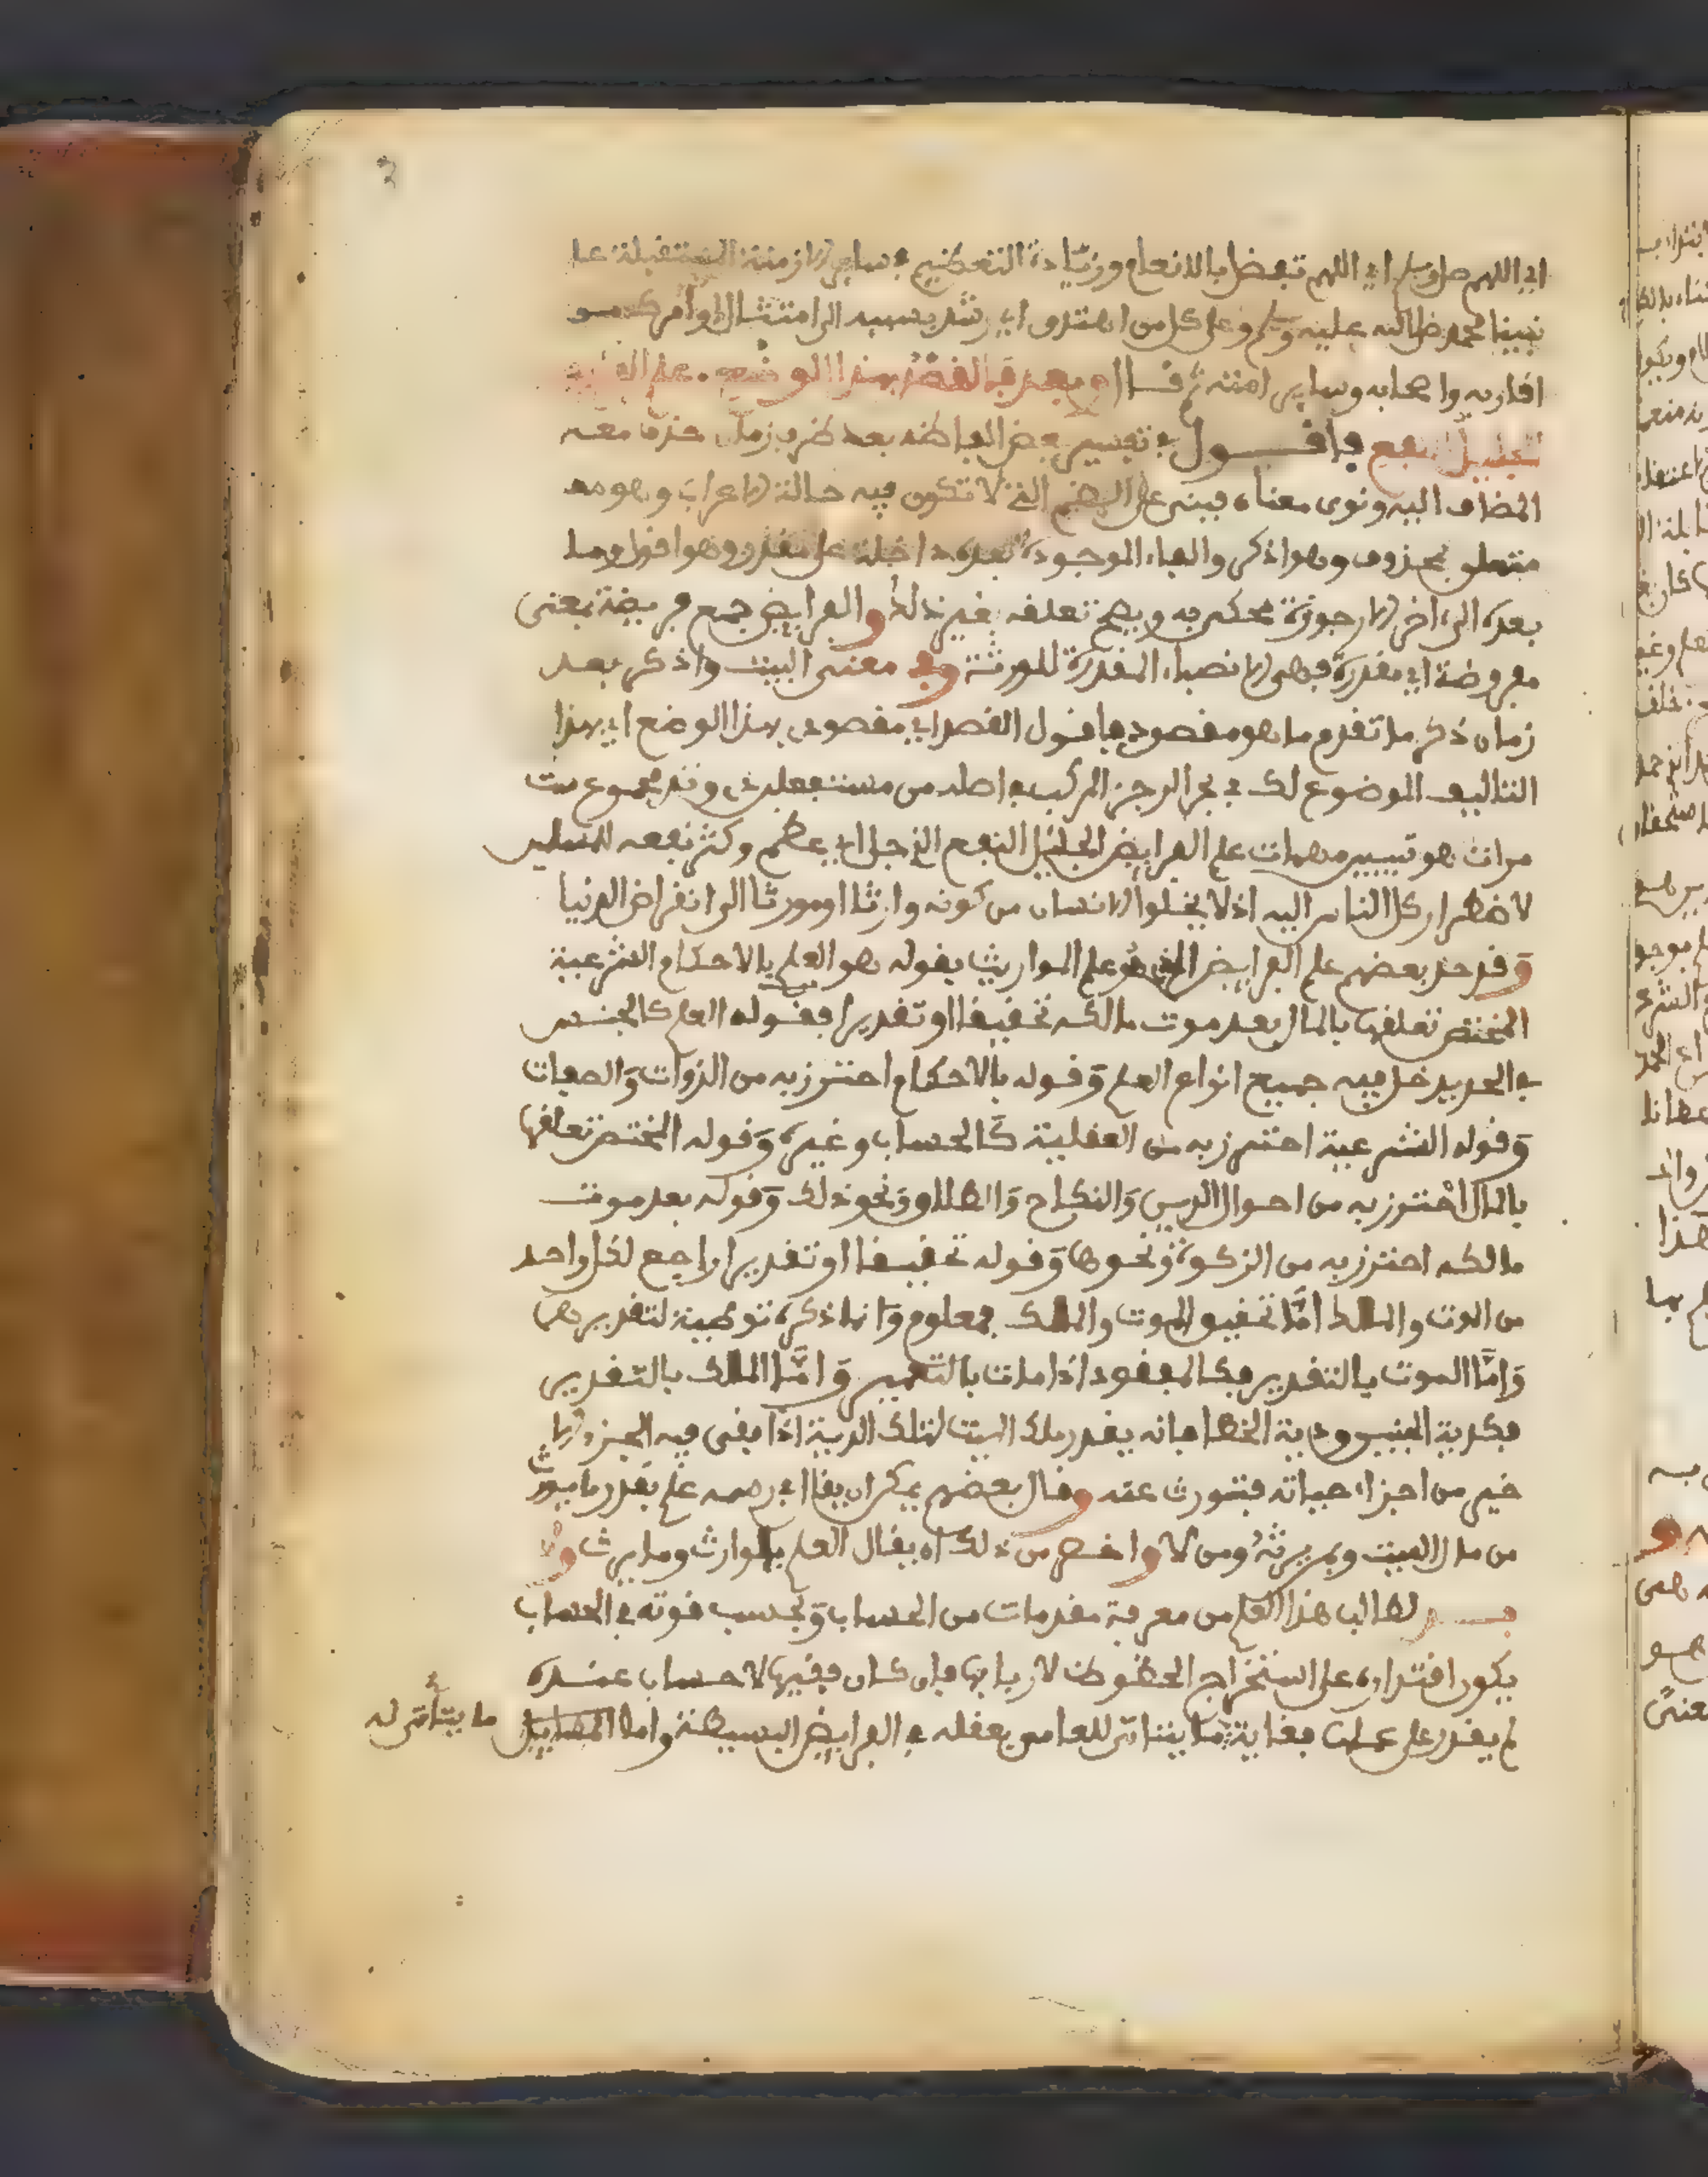 اي اللهم صل وسلم اي اللهم تفضل بالانعام وزيادة التعظيم في ساير الازمنة المستقبلة على
نبينا محمد صلى الله عليه وسلم وعلى كل من اهتدى اي رشد بسببه الى امتثال اوامر
اقاربه واصحابه وساير امته ثم قال وبعد فالقصد بهذا الوضع علم
الجليل النفع فاقول في تفسير بعض الفاظه بعد ظرف زمان حذف معه
المضاف اليه ونوى معناه فبنى على الضم الذي لا تكون فيه حالة الاعراب وهو مع
متعلق بمحذوف وهو اذكر والفاء الموجودة بعده داخلة على مقدر وهو اقول وما
بعده الى اخر الارجوزة محكي به ويصح تعلقه بغير ذلك والفرايض جمع فريضة بمعنى
مفروضة اي مقدرة فهي الانصباء المقدرة للورثة وفي معنى البيت واذكر بعد
زمان ذكر ما تقدم ما هو مقصودي فاقول القصد اي مقصودي بهذا الوضع اي بهذا
التاليف الموضوع لك في بحر الرجز المركب في اصله من مستفعلن مجموع ست
مرات هو تيسير مهمات علم الفرايض الجليل النفع الذي جل اي عظم وكثر نفعه للمسلمين
لاضطرار كل الناس اليه اذ لا يخلوا الانسان من كونه وارثا او موروثا الى انقراض الدنيا
وقد حد بعضهم علم الفرايض الذي هو علم المواريث بقوله هو العلم بالاحكام الشرعية
المختص تعلقها بالمال بعد موت مالكه تحقيقا او تقديرا فقوله العلم كالجنس
في الحد يدخل فيه جميع انواع العلم وقوله بالاحكام احترز به من الذوات والصفات
وقوله الشرعية احترز به من العقلية كالحساب وغيره وقوله المختص تعلقها
بالمال احترز به من احوال الدين والنكاح والطلاق ونحو ذلك وقوله بعد موت
مالكه احترز به من الزكوة ونحوها وقوله تحقيقا او تقديرا راجع لكل واحد
من الموت والملك اما تحقيق الموت والملك فمعلوم وانما ذكره توطية لتقديرهما
واما الموت بالتقدير فكالمفقود اذا مات بالتعمير واما الملك بالتقدير
فكدية الجنين ودية الخطا فانه يقدر ملك الميت لتلك الدية اذا بقى فيه الجزء الا
خير من اجزاء حياته فتورث عنه وقال بعضهم يمكن ان يقال في رسمه علم بقدر ما يورث
من مال الميت وبمن يرثه ومن لا واوضح من ذلك ان يقال العلم بالوارث وما يرث ولا
بد لطالب هذا العلم من معرفة مقدمات من الحساب وبحسب قوته في الحساب
يكون اقتداره على استخراج الحظوظ لاربابها فان كان فقيها لا حساب عنده
لم يقدر على عملها فغاية ما يتاتى للعامي بعقله في الفرايض البسيطة واما المسايل ما يتاتى له